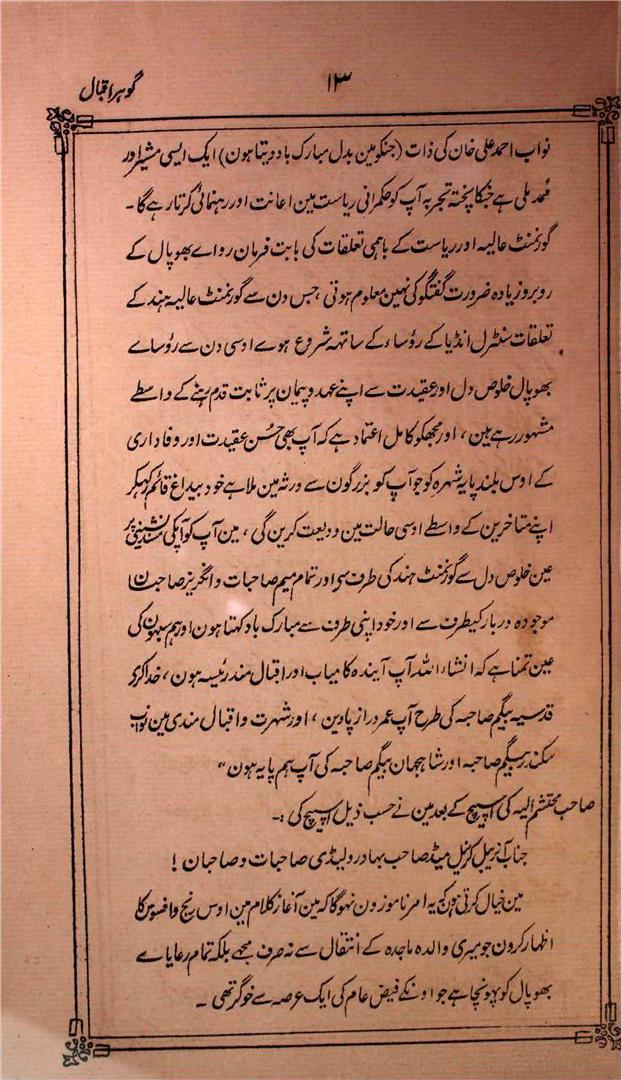 ۱۳
گوہر اقبال
نواب احمد علی خان کی ذات (جنکو مین بدل مبارک باد دیتا ہون) ایک ایسی مشیر اور
مُمد ملی ہے جنکا پختہ تجربہ آپ کو حکمرانی ریاست مین اعانت اور رہنمائی کرتا رہے گا۔
گورنمنٹ عالیہ اور ریاست کے باہمی تعلقات کی بابت فرمان رواے بھوپال کے
روبرو زیادہ ضرورت گفتگو کی نہین معلوم ہوتی، جس دن سے گورنمنٹ عالیہ ہند کے
تعلقات سنٹرل انڈیا کے رؤساء کے ساتھہ شروع ہوے اوسی دن سے رؤساے
بھوپال خلوص دل اور عقیدت سے اپنے عہد و پیمان پر ثابت قدم رہنے کے واسطے
مشہور رہے ہین، اور مجھکو کامل اعتماد ہے کہ آپ بھی حُسن عقیدت اور وفاداری
کے اوس بلند پایہ شہرہ کو جو آپ کو بزرگون سے ورثہ مین ملا ہے خود بیداغ قائم رکھکر
اپنے متاخرین کے واسطے اوسی حالت مین ودیعت کرین گی، مین آپ کو آپکی مسند نشینی پر
عین خلوص دل سے گورنمنٹ ہند کی طرف سے اور تمام میم صاحبات و انگریز صاحبان
موجودہ دربار کیطرف سے اور خود اپنی طرف سے مبارک باد کہتا ہون اور ہم سبہون کی
عین تمنا ہے کہ انشاء اللہ آپ آیندہ کامیاب اور اقبال مند رئیسہ ہون، خدا کرے
قدسیہ بیگم صاحبہ کی طرح آپ عمر دراز پاوین، اور شہرت و اقبال مندی مین نواب
سکندر بیگم صاحبہ اور شاہجہان بیگم صاحبہ کی آپ ہم پایہ ہون“
صاحب محتشم الیہ کی اسپیچ کے بعد مین نے حسب ذیل اسپیچ کی :۔
جناب آنریبل کرنیل میڈ صاحب بہادر و لیڈی صاحبات و صاحبان!
مین خیال کرتی ہون کہ یہ امر ناموزون نہوگا کہ مین آغاز کلام مین اوس رنج و افسوس کا
اظہار کرون جو میری والدہ ماجدہ کے انتقال سے نہ صرف مجھے بلکہ تمام رعایاے
بھوپال کو پہونچا ہے جو اونکے فیض عام کی ایک عرصہ سے خوگر تھی۔